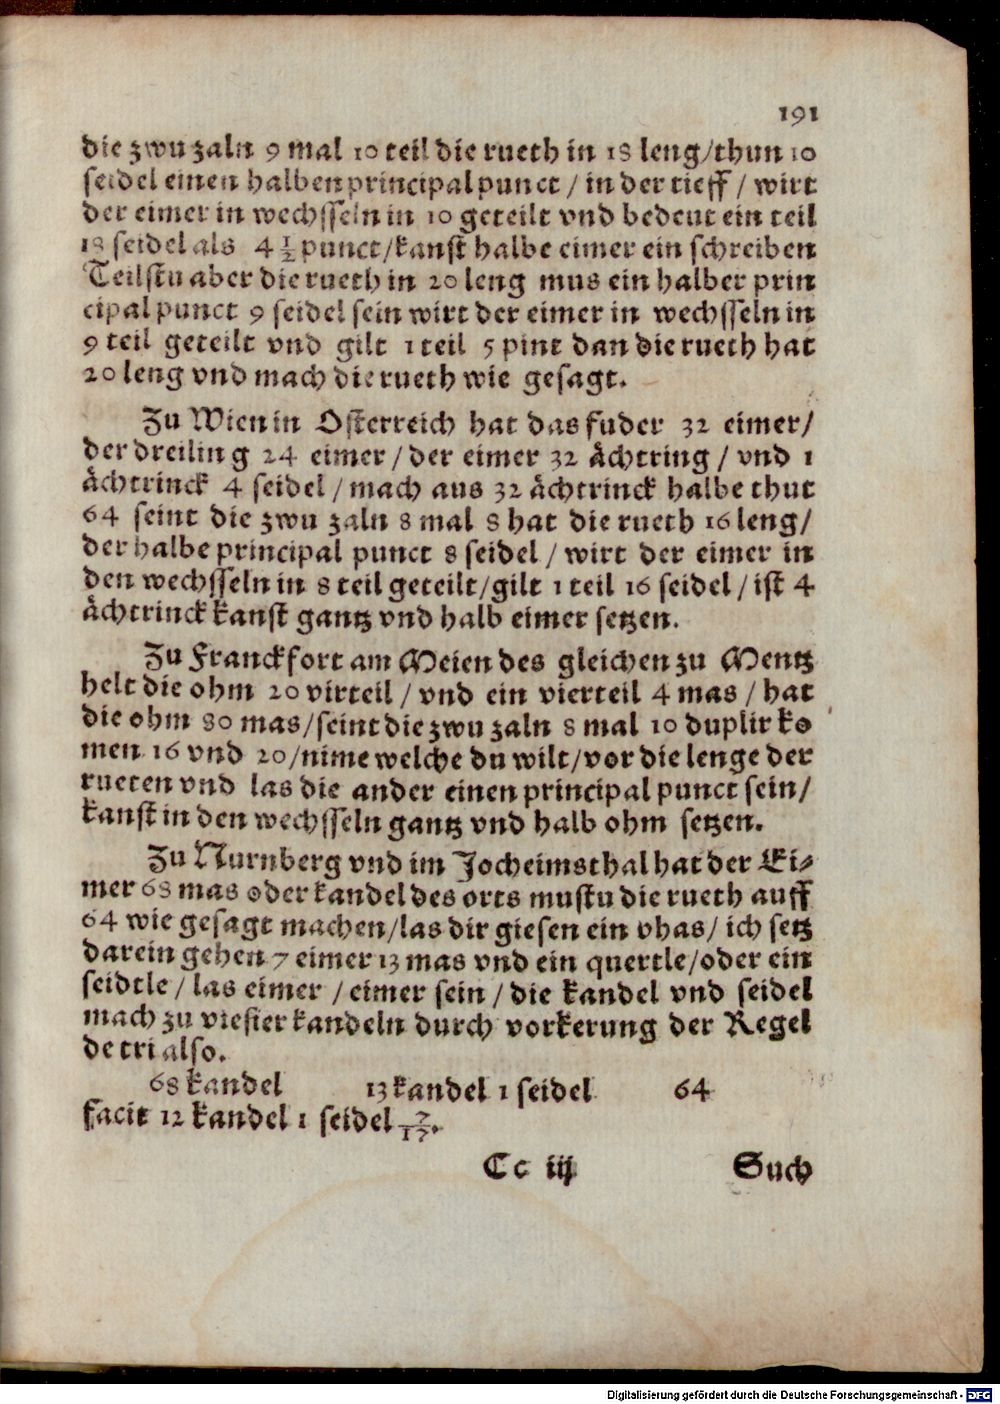 191
die zwu zaln 9 mal 10 teil die rueth in 18 leng/thun 10
seidel einen halben principal punct / in der tieff / wirt
der eimer in wechsseln in 10 geteilt vnd bedeut ein teil
18 seidel als 4 1/2 punct/kanst halbe eimer ein schreiben
Teilstu aber die rueth in 20 leng mus ein halber prin
cipal punct 9 seidel sein wirt der eimer in wechsseln in
9 teil geteilt vnd gilt 1 teil 5 pint dan die rueth hat
20 leng vnd mach die rueth wie gesagt.
Zu Wien in Osterreich hat das fuder 32 eimer/
der dreiling 24 eimer / der eimer 32 ächtring / vnd 1
ächtrinck 4 seidel / mach aus 32 ächtrinck halbe thut
64 seint die zwu zaln 8 mal 8 hat die rueth 16 leng/
der halbe principal punct 8 seidel / wirt der eimer in
den wechsseln in 8 teil geteilt/gilt 1 teil 16 seidel / ist 4
ächtrinck kanst gantz vnd halb eimer setzen.
Zu Franckfort am Meien des gleichen zu Mentz
helt die ohm 20 virteil / vnd ein vierteil 4 mas / hat
die ohm 80 mas/seint die zwu zaln 8 mal 10 duplir ko
men 16 vnd 20/nime welche du wilt/vor die lenge der
rueten vnd las die ander einen principal punct sein/
kanst in den wechsseln gantz vnd halb ohm setzen.
Zu Nurnberg vnd im Jocheimsthal hat der Ei-
mer 68 mas oder kandel des orts mustu die rueth auff
64 wie gesagt machen/las dir giesen ein vhas/ ich setz
darein gehen 7 eimer 13 mas vnd ein quertle/oder ein
seidtle / las eimer / eimer sein / die kandel vnd seidel
mach zu viesier kandeln durch vorkerung der Regel
de tri also.
68 kandel 13 kandel 1 seidel 64
facit 12 kandel 1 seidel 7/17.
Cc iij Such
Digitalisierung gefördert durch die Deutsche Forschungsgemeinschaft - DFG